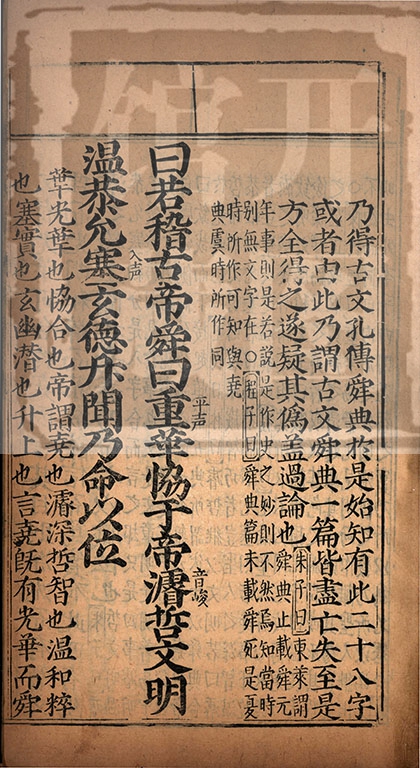 乃得古文孔傳舜典於是始知有此二十八字
或者由此乃謂古文舜典一篇皆盡亡失至是
方全得之遂疑其僞蓋過論也朱子曰東萊謂
舜典止載舜元
年事則是若說是作史之妙則不然焉知當時
別無文字在○程子曰舜典篇末載舜死是夏
時所作可知與堯
典虞時所作同
曰若稽古帝舜曰重平声華恊于帝濬音峻哲文明
温恭允塞入声玄德升聞乃命以位
華光華也恊合也帝謂堯也濬深哲智也温和粹
也塞實也玄幽潛也升上也言堯旣有光華而舜